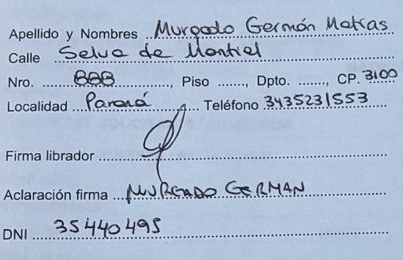 Apellido y Nombres Murgado Germán Matías
Calle Selva de Montiel
Nro. BBB, Piso ......, Dpto. ......, CP. 3100
Localidad Paraná Teléfono 3435231553
Firma librador
Aclaración firma MURGADO GERMAN
DNI 35440495